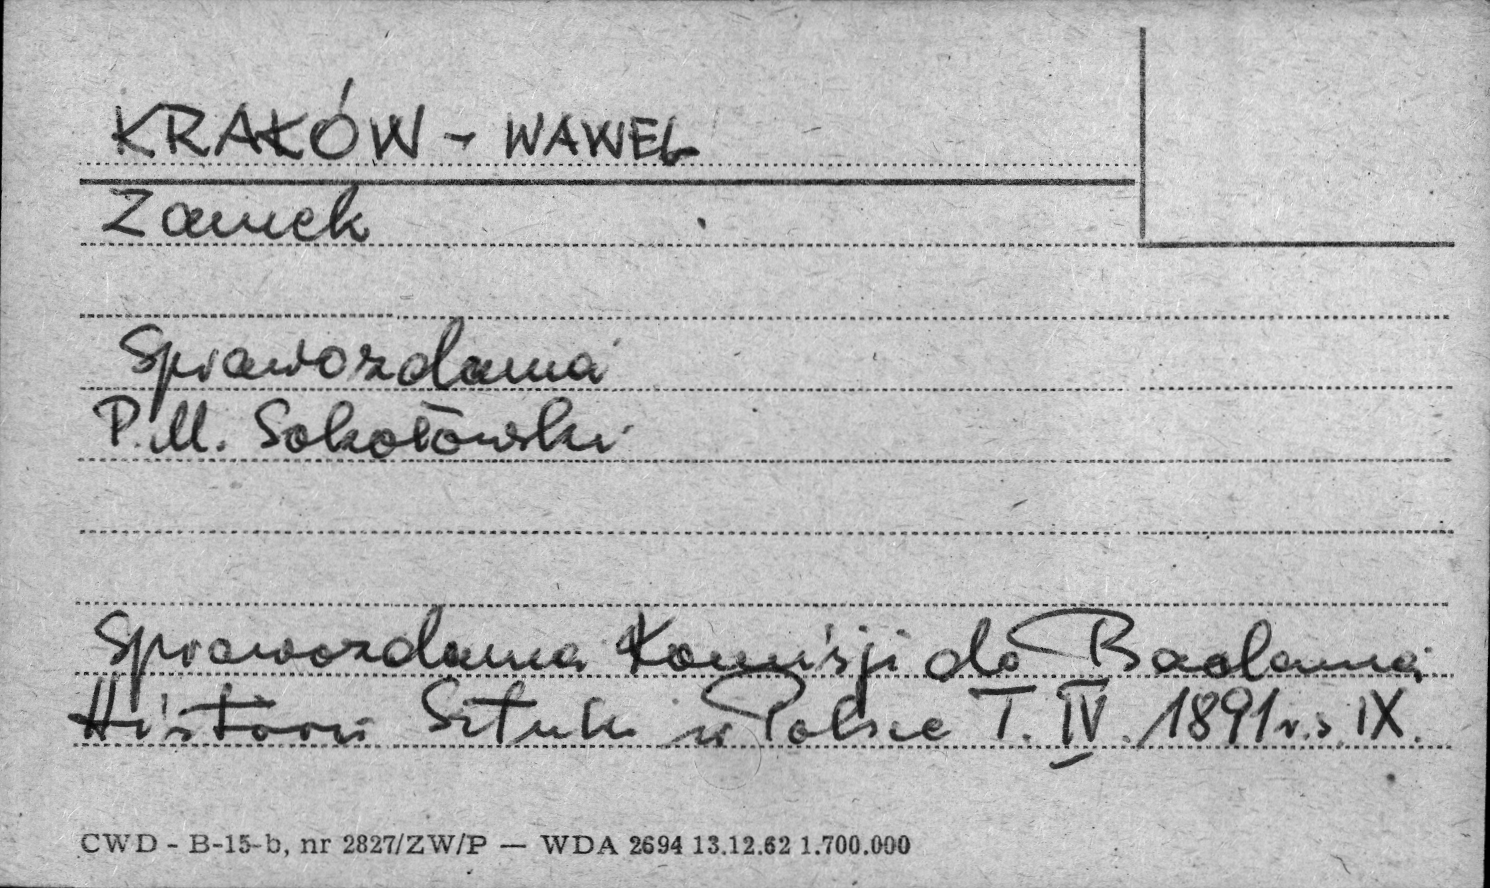 KRAKÓW - WAWEL
Zamek
Sprawozdania
P. M. Sokołowski
Sprawozdania Komisji do Badania
Historii Sztuki w Polsce T. IV. 1891 r. s. IX.
CWD - B-15-b, nr 2827/ZW/P — WDA 2694 13.12.62 1.700.000